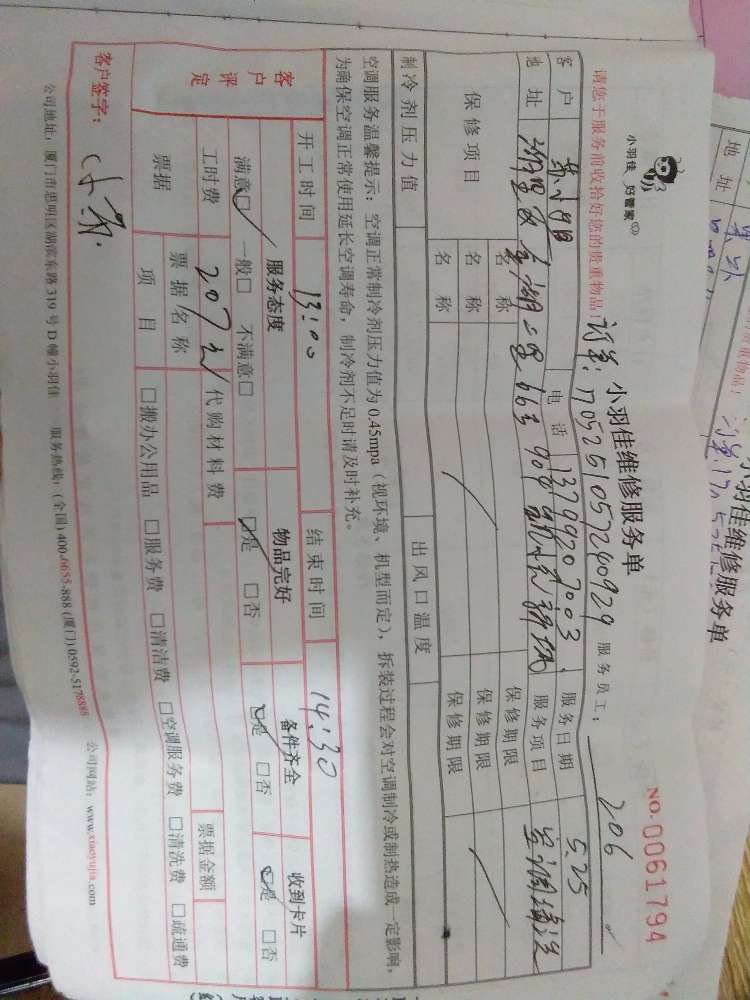 小羽佳 好管家
小羽佳维修服务单
NO.0061794
请您于服务前收拾好您的贵重物品!
订单:1705251057240929
服务员工: 206
客户 苏小姐 电话 13799207003 服务日期 5.25
地址 湖里区 金湖二里 66号 904 服务项目 空调清洗
保修项目 名称 保修期限
名称 保修期限
名称 保修期限
制冷剂压力值 出风口温度
空调服务温馨提示:空调正常制冷剂压力值为0.45mpa(视环境、机型而定),拆装过程会对空调制冷或制热造成一定影响,
为确保空调正常使用延长空调寿命,制冷剂不足时请及时补充。
开工时间 13:00 结束时间 14:30
客户评定 服务态度 物品完好 备件齐全 收到卡片
满意☑ 一般□ 不满意□ ☑是 □否 ☑是 □否 ☑是 □否
工时费 207元 代购材料费
票据 票据名称 票据金额
项目 □搬办公用品 □服务费 □清洁费 □空调服务费 □清洗费 □疏通费
客户签字:
公司地址:厦门市思明区湖滨东路319号D幢小羽佳 服务热线:(全国)400-6655-888 (厦门)0592-5178885 公司网站:www.xiaoyujia.com
小羽佳维修服务单
地址